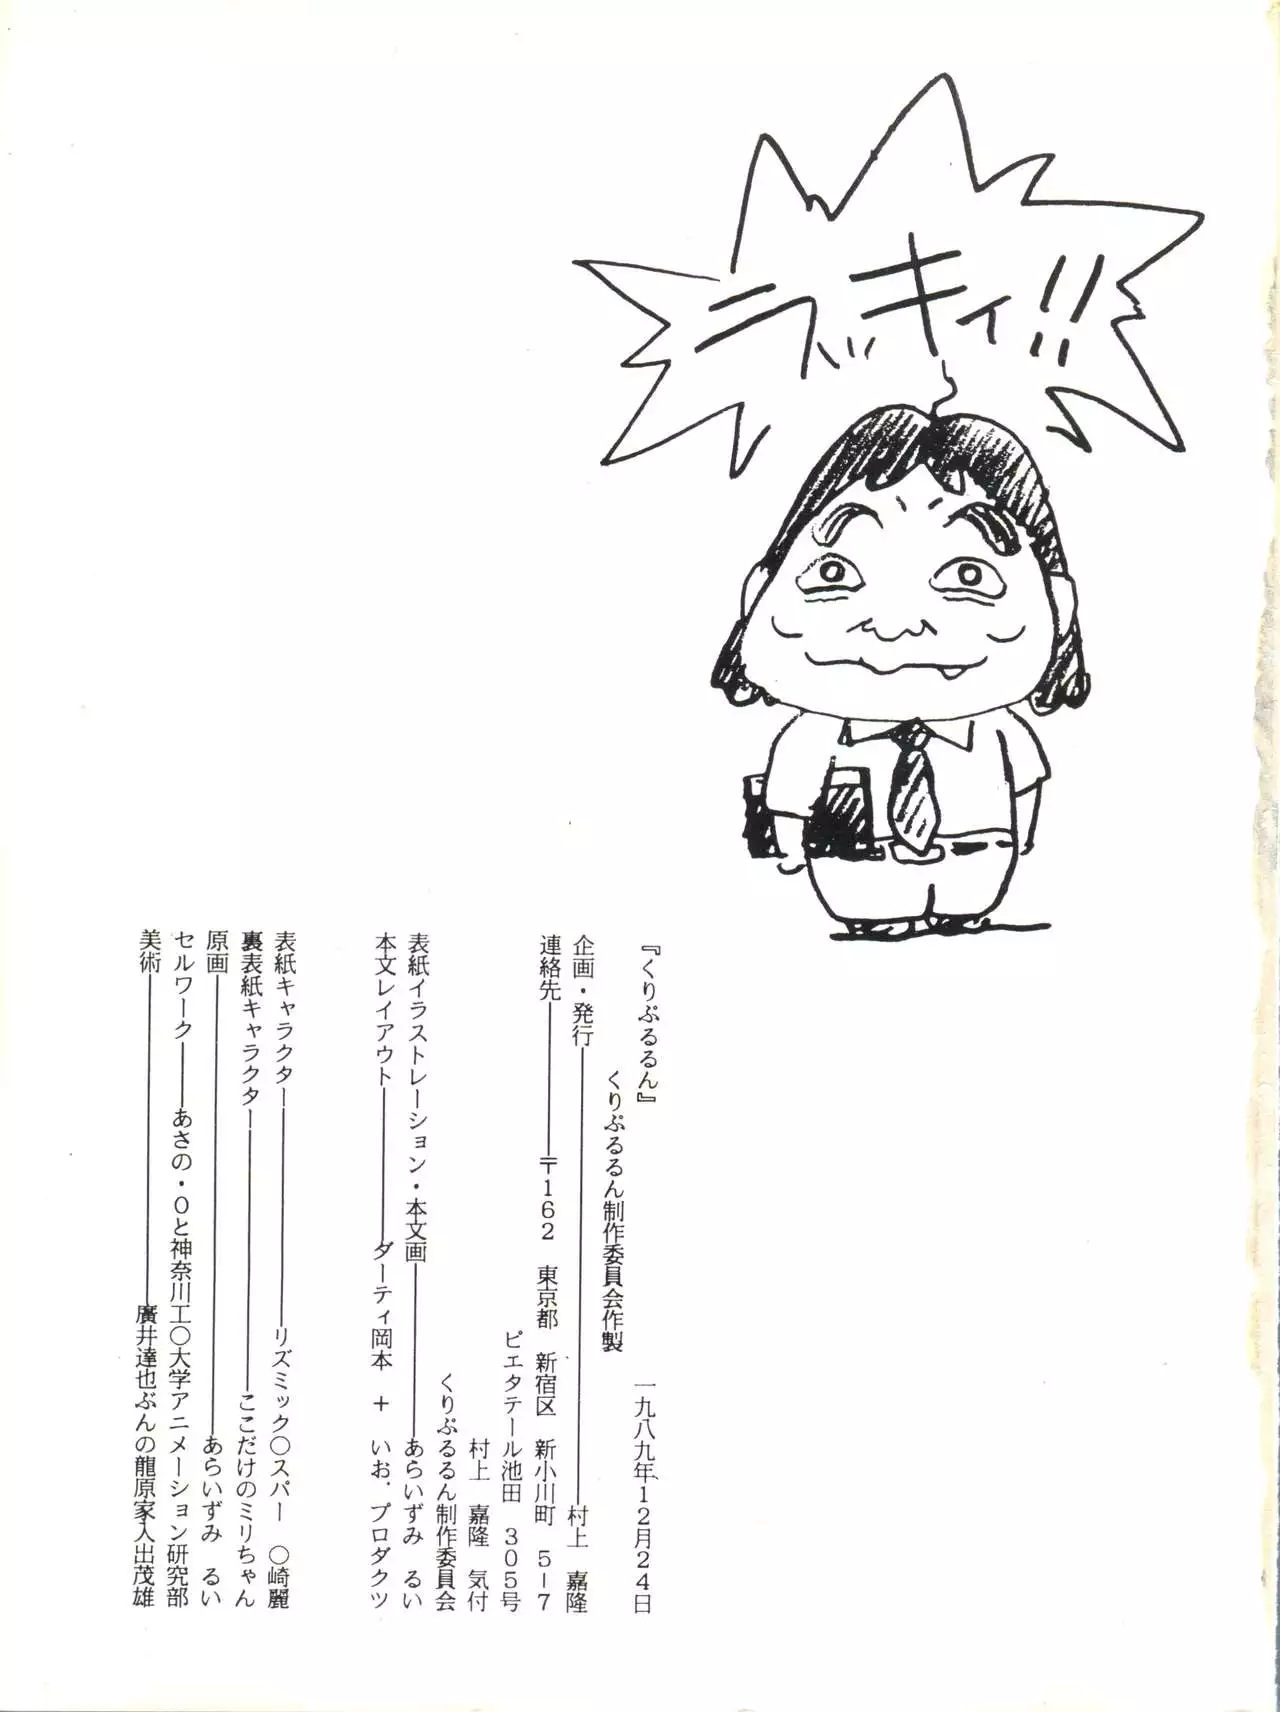 ラッキィ!!
『くりぷるるん』
一九八九年、12月24日
くりぷるるん制作委員会作製
企画・発行――村上　嘉隆
連絡先――〒162　東京都　新宿区　新小川町　5-7
ピエタテール池田　305号
村上　嘉隆　気付
くりぷるるん制作委員会
表紙イラストレーション・本文画――あらいずみ　るい
本文レイアウト――ダーティ岡本　+　いお．プロダクツ
表紙キャラクター――リズミック○スパー　○崎麗
裏表紙キャラクター――ここだけのミリちゃん
原画――あらいずみ　るい
セルワーク――あさの・0と神奈川工○大学アニメーション研究部
美術――廣井達也ぶんの龍原家人出茂雄